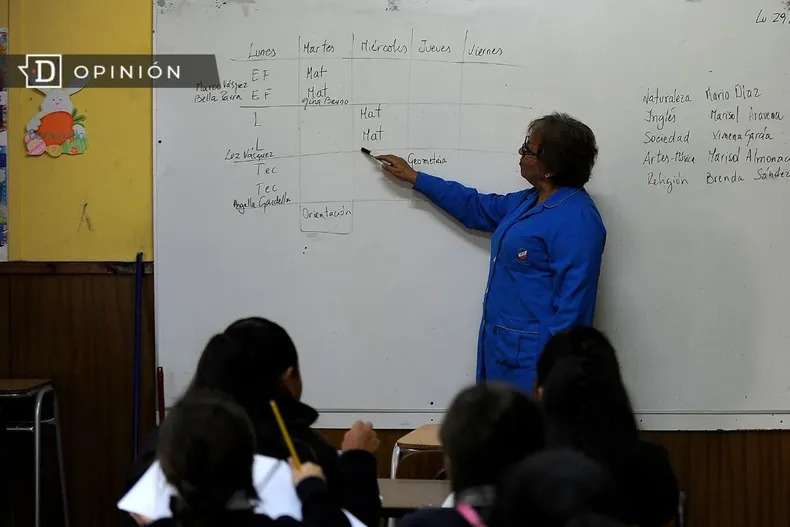 D OPINIÓN
Lu 29
Lunes Martes Miércoles Jueves Viernes
E F Mat
E F Mat
L Mat
L Mat
Luz Vásquez Geometría
Tec
Tec
Angella Gardella
Orientación
Naturaleza Mario Díaz
Inglés Marisol Aravena
Sociedad Ximena García
Artes-Música Marisol Almonac
Religión Brenda Sánchez